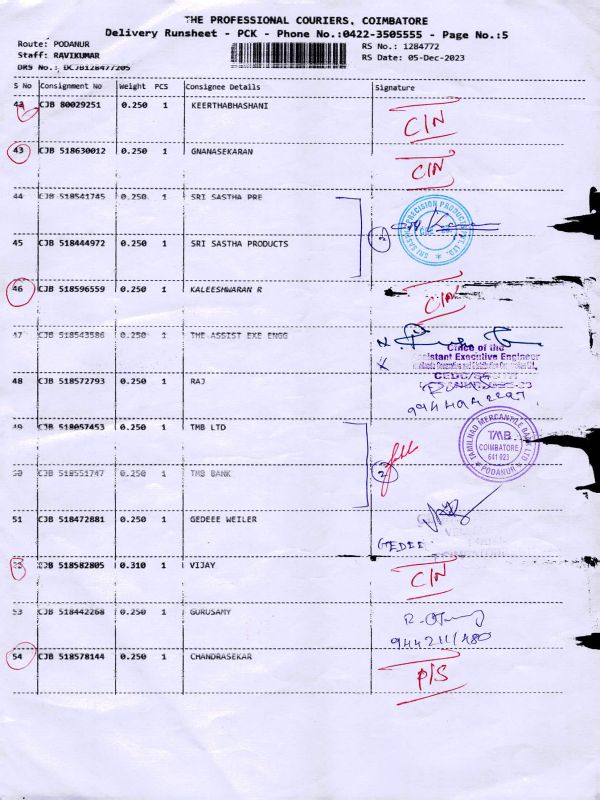 THE PROFESSIONAL COURIERS, COIMBATORE
Delivery Runsheet - PCK - Phone No.:0422-3505555 - Page No.:5
Route: PODANUR
RS No.: 1284772
Staff: RAVIKUMAR
RS Date: 05-Dec-2023
DRS No.: DCJB128477205
S No Consignment No Weight PCS Consignee Details Signature
42 CJB 80029251 0.250 1 KEERTHABHASHANI
C/N
43 CJB 518630012 0.250 1 GNANASEKARAN
C/N
44 CJB 518541745 0.250 1 SRI SASTHA PRE
SRI SASTHA PRECISION PRODUCTS PVT. LTD.
2
45 CJB 518444972 0.250 1 SRI SASTHA PRODUCTS
46 CJB 518596559 0.250 1 KALEESHWARAN R
C/N
47 CJB 518543586 0.250 1 THE ASSIST EXE ENGG
Office of the
Assistant Executive Engineer
48 CJB 518572793 0.250 1 RAJ
49 CJB 518057453 0.250 1 TMB LTD
TAMILNAD MERCANTILE BANK LTD
TMB
COIMBATORE
641 023
PODANUR
2
50 CJB 518551747 0.250 1 TMB BANK
51 CJB 518472881 0.250 1 GEDEEE WEILER
GEDEE
52 CJB 518582805 0.310 1 VIJAY
C/N
53 CJB 518442268 0.250 1 GURUSAMY
9442111480
54 CJB 518578144 0.250 1 CHANDRASEKAR
P/S